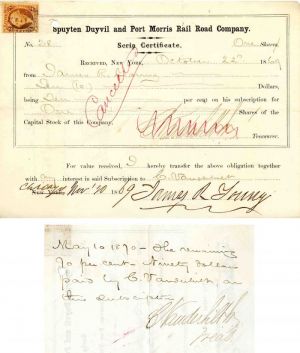 Spuyten Duyvil and Port Morris Rail Road Company.
Scrip Certificate.
No. 28 One Shares
Received, New York, October 22d 1869
from James R.
Ten (10) Dollars,
being Ten per cent on his subscription for
One Shares of the
Capital Stock of this Company.
Cancelled
Treasurer.
For value received, I hereby transfer the above obligation together
with my interest in said Subscription to C. Vanderbilt
Nov 10 1869 James R
May 10 1870 - The remaining
90 per cent - Ninety dollars
paid by C. Vanderbilt on
this subscription
C Vanderbilt